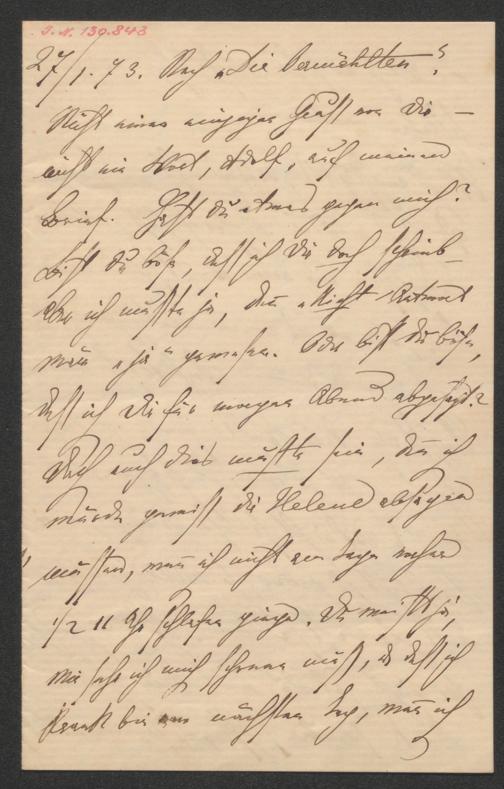 I. N. 139.843
27/1. 73. Nach „Die Vermählten“
Nicht einen einzigen Gruß von Dir —
nicht ein Wort, Adolf, auf meinen
Brief. Hast du etwas gegen mich?
Bist du böse, daß ich Dir doch schrieb
Aber ich mußte ja, denn „Nicht Antwort
war „ja“ gewesen. Oder bist du böse,
daß ich Dir für morgen Abend abgesagt?
Doch auch dies mußte sein, denn ich
würde gewiß die Helene absagen
müssen, wenn ich nicht am Tage vorher
1/2 11 Uhr schlafen ginge. Du weißt ja,
wie sehr ich mich schonen muß, daß ich
krank bin am nächsten Tag, wenn ich